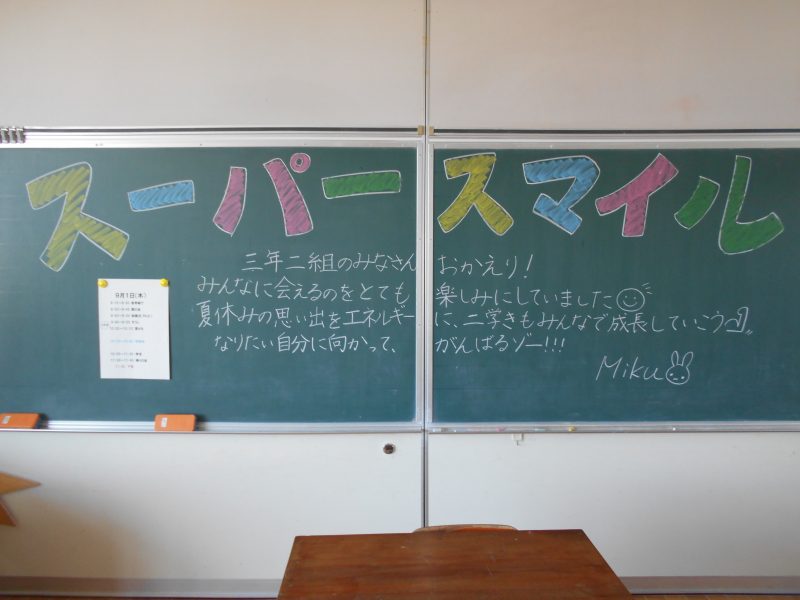 スーパースマイル
三年二組のみなさん おかえり!
みんなに会えるのをとても 楽しみにしていました
夏休みの思い出をエネルギーに、二学きもみんなで成長していこう
なりたい自分に向かって、 がんばるゾー!!!
Miku
9月1日(木)